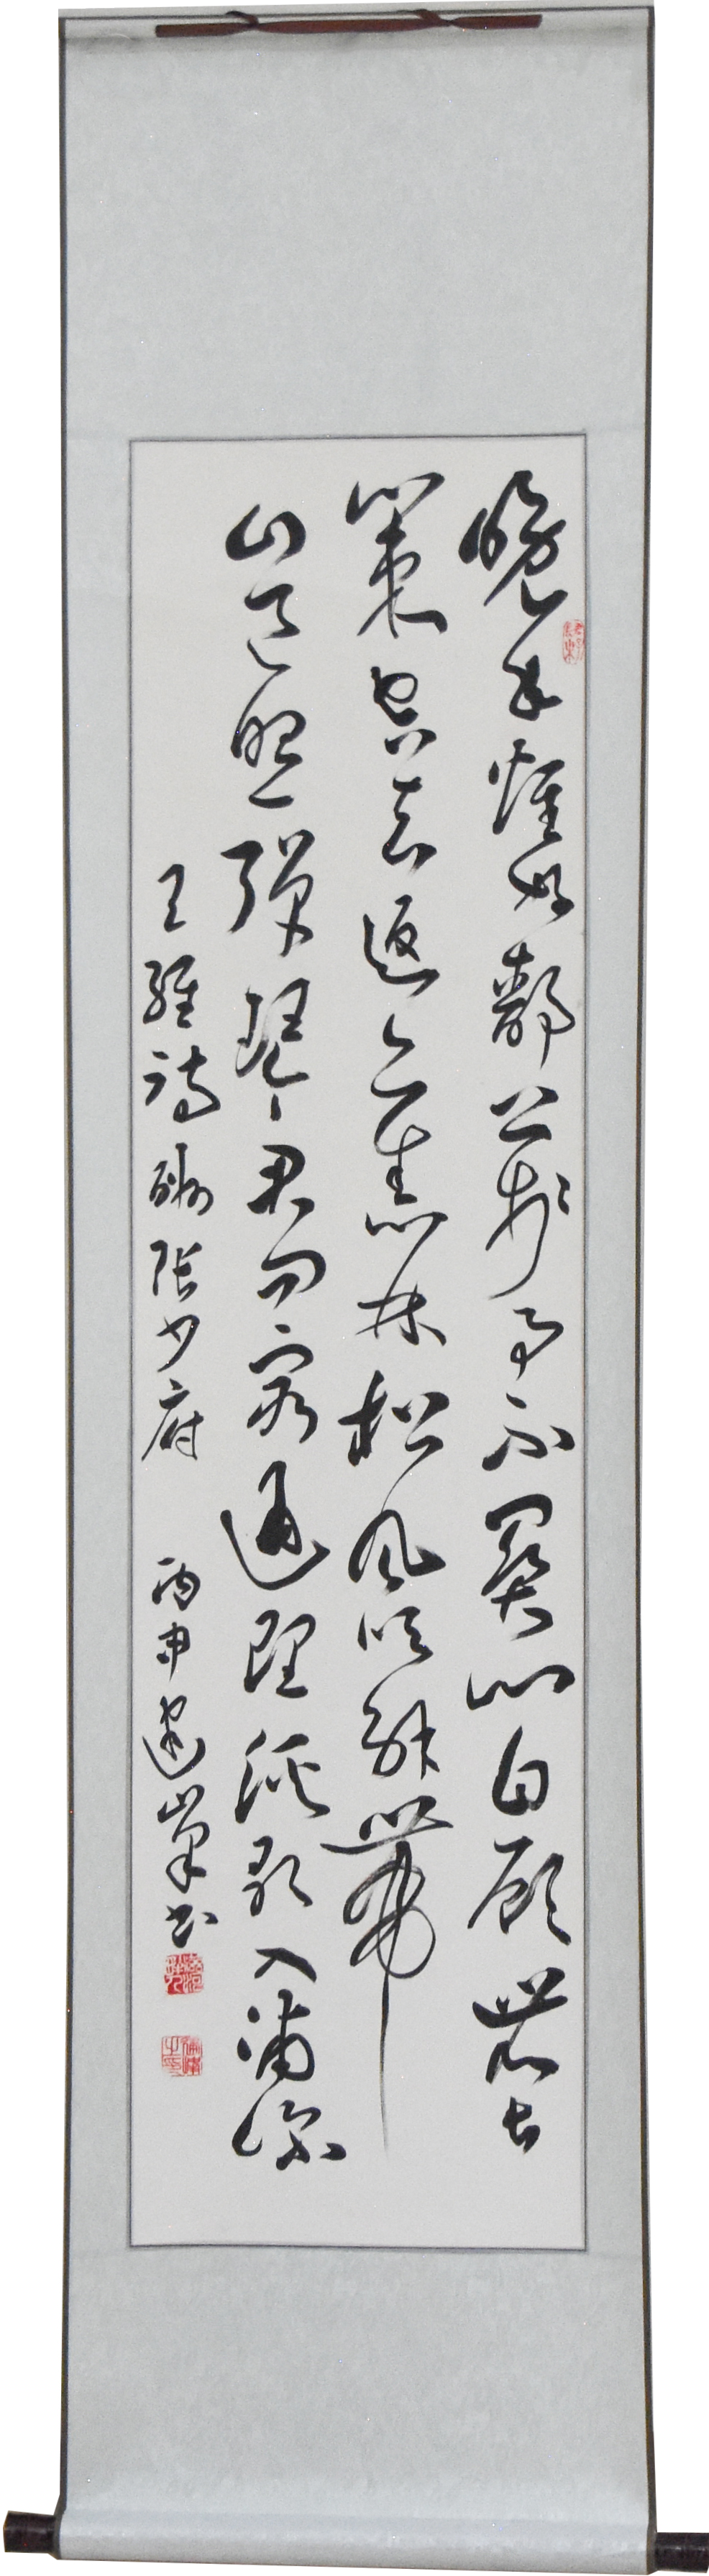 晚年惟好靜萬事不關心自顧無長
策空知返舊林松風吹解帶
山月照彈琴君問窮通理漁歌入浦深
王維詩酬張少府 丙申書